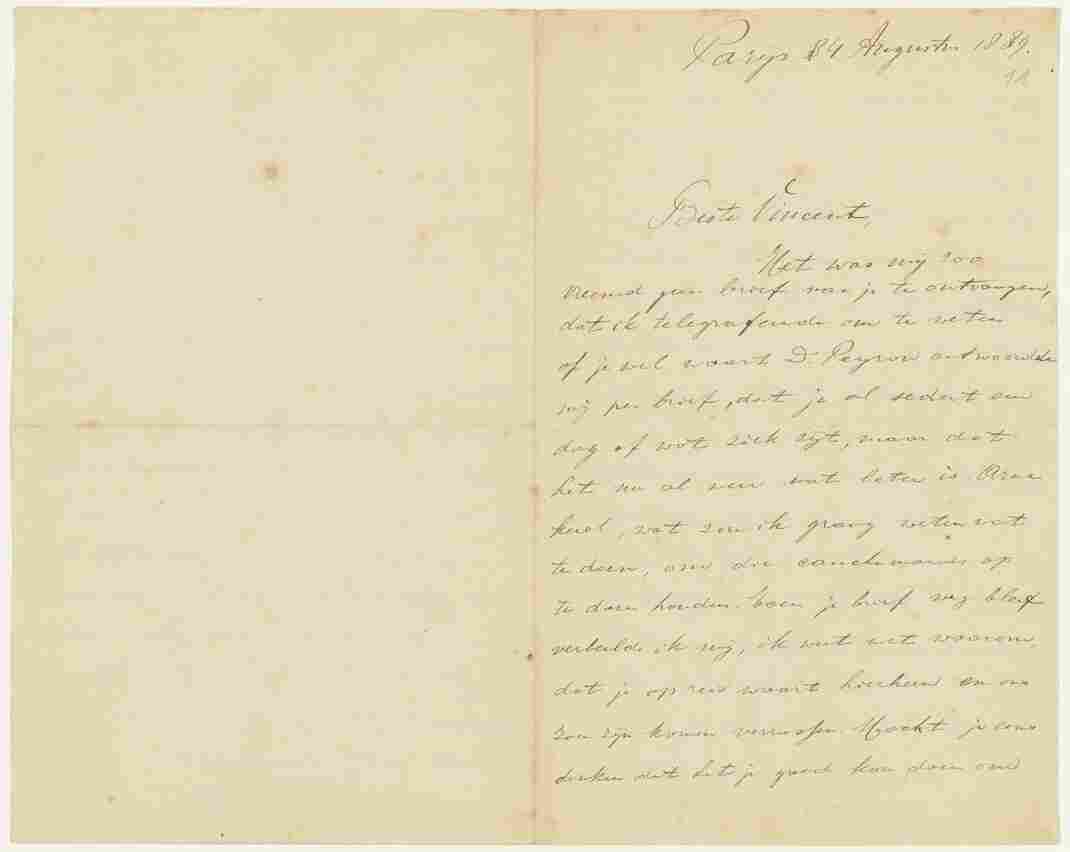 Parijs 4 Augustus 1889.
11
Beste Vincent,
Het was mij zoo
vreemd geen brief van je te ontvangen,
dat ik telegrafeerde om te weten
of je wel waart. Dr. Peyron antwoordde
mij per brief, dat je al sedert een
dag of wat ziek zijt, maar dat
het nu al weer wat beter is. Arme
kerel, wat zou ik graag weten wat
te doen, om die cauchemares op
te doen houden. Toen je brief weg bleef
verbeeldde ik mij, ik weet niet waarom,
dat je op reis waart hierheen en ons
zou zijn komen verrassen. Mocht je eens
denken dat het je goed kon doen om